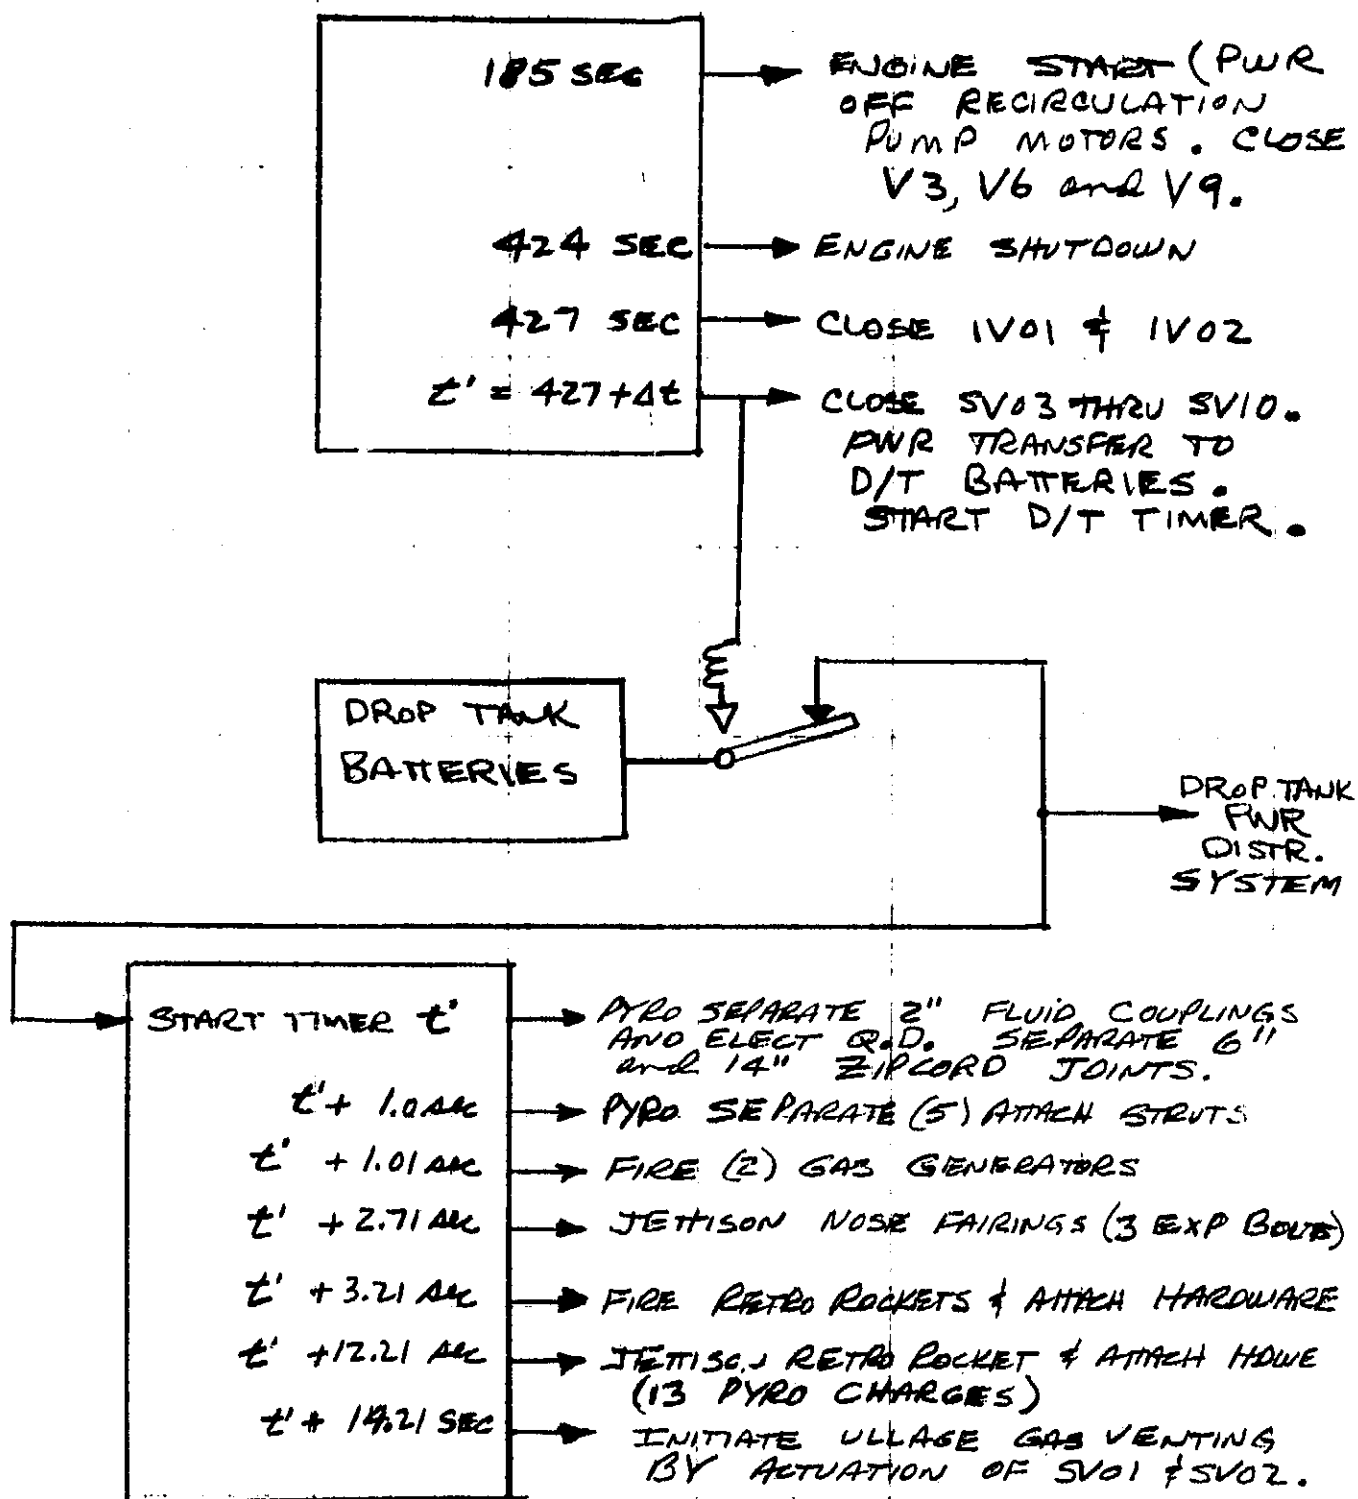 185 SEC
ENGINE START (PWR
OFF RECIRCULATION
PUMP MOTORS. CLOSE
V3, V6 and V9.
424 SEC
ENGINE SHUTDOWN
427 SEC
CLOSE 1V01 & 1V02
t' = 427+Δt
CLOSE SV03 THRU SV10.
PWR TRANSFER TO
D/T BATTERIES.
START D/T TIMER.
DROP TANK
BATTERIES
DROP TANK
PWR
DISTR.
SYSTEM
START TIMER t'
PYRO SEPARATE 2" FLUID COUPLINGS
AND ELECT Q.D. SEPARATE 6"
and 14" ZIPCORD JOINTS.
t' + 1.0 sec
PYRO SEPARATE (5) ATTACH STRUTS
t' + 1.01 sec
FIRE (2) GAS GENERATORS
t' + 2.71 sec
JETTISON NOSE FAIRINGS (3 EXP BOLTS)
t' + 3.21 sec
FIRE RETRO ROCKETS & ATTACH HARDWARE
t' + 12.21 sec
JETTISON RETRO ROCKET & ATTACH HDWE
(13 PYRO CHARGES)
t' + 14.21 SEC
INITIATE ULLAGE GAS VENTING
BY ACTUATION OF SV01 & SV02.